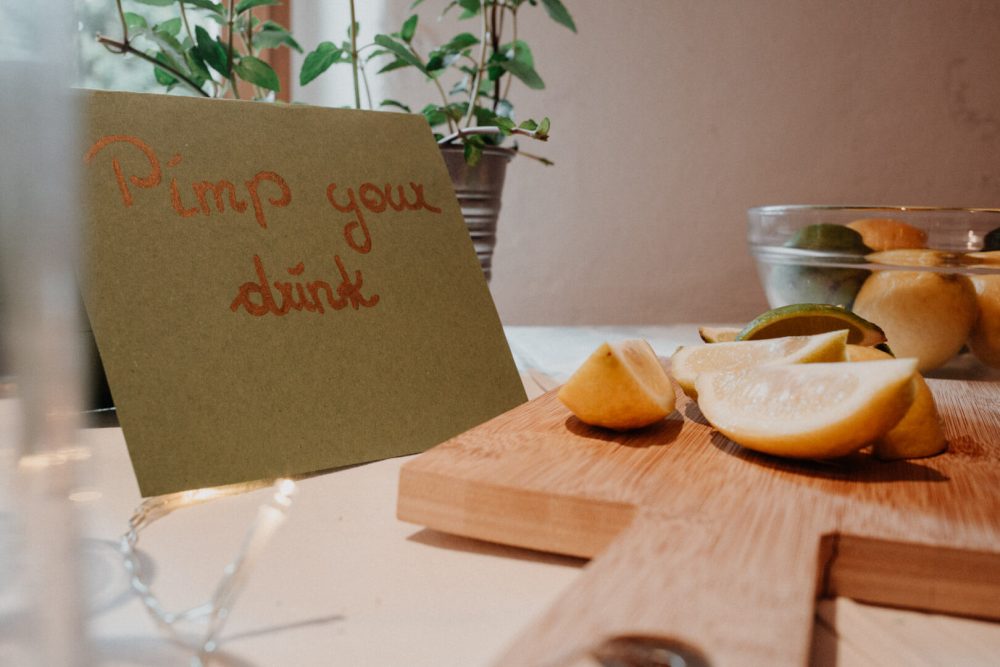 Pimp your
drink